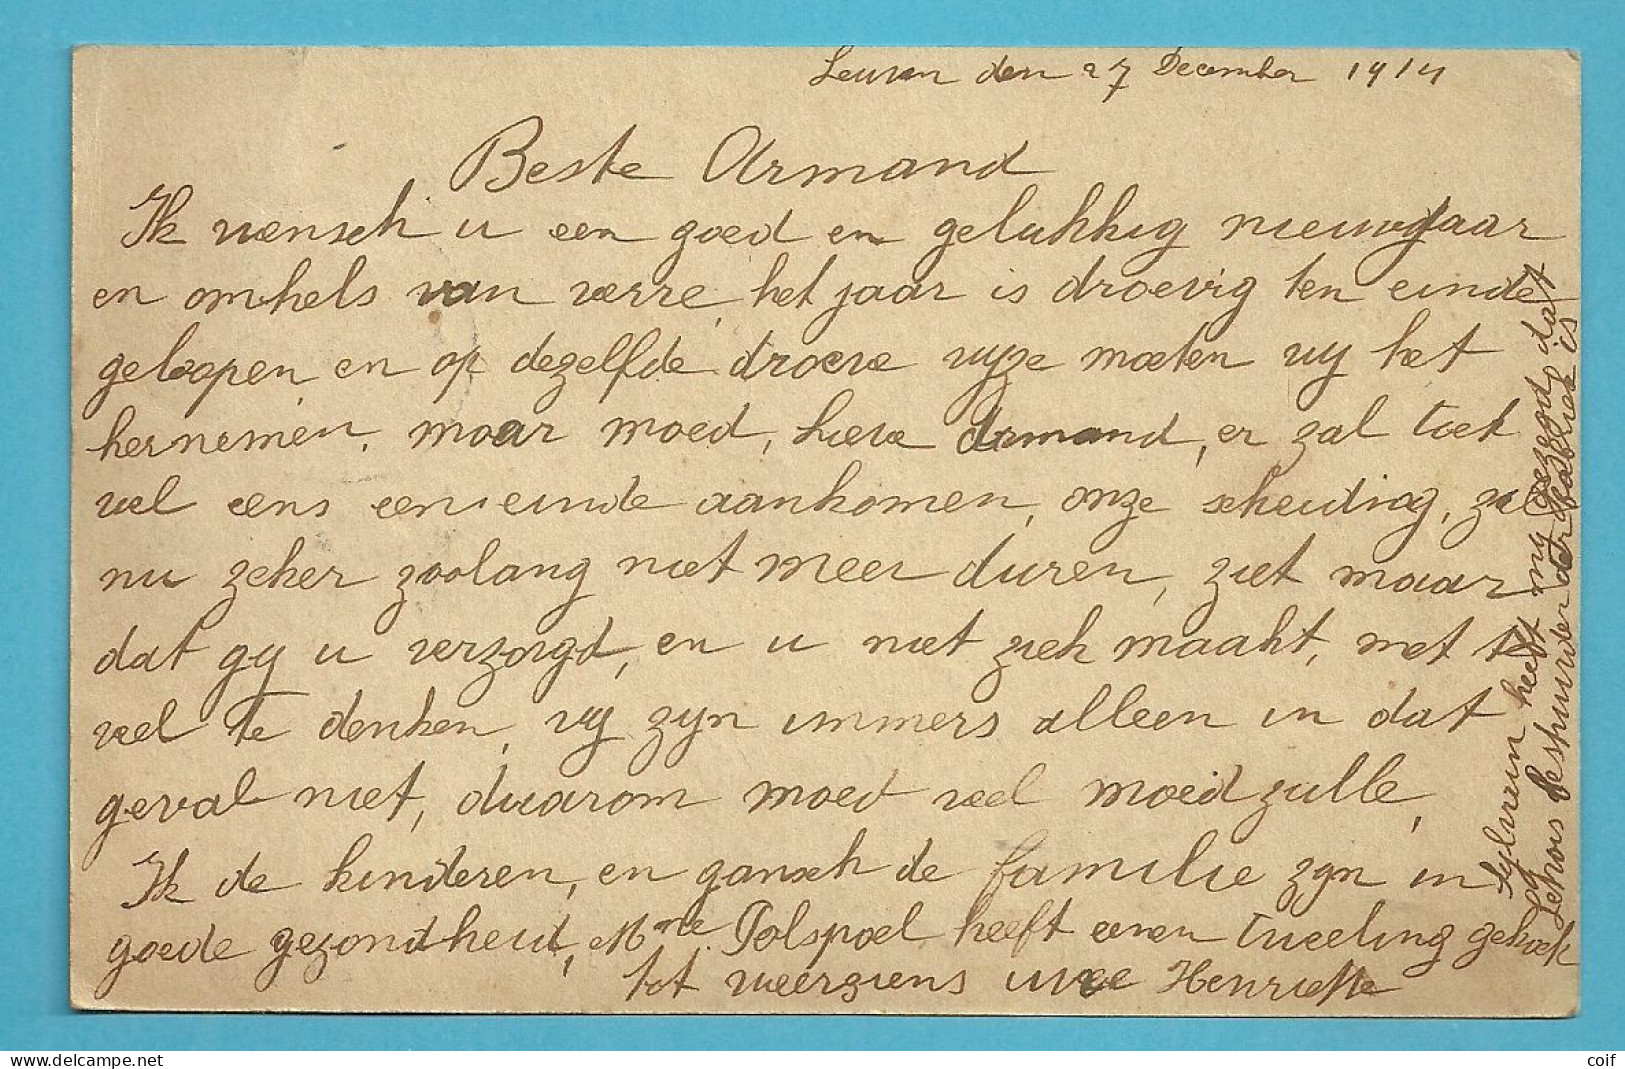 Leuven den 27 December 1914
Beste Armand
Ik wensch u een goed en gelukkig nieuwjaar
en omhels van verre, het jaar is droevig ten einde
geloopen en op dezelfde droeve wyze moeten wy het
hernemen. maar moed, lieve Armand, er zal toch
wel eens een einde aankomen, onze scheiding, zal
nu zeker zoolang niet meer duren, ziet maar
dat gy u verzorgd, en u niet ziek maakt, met te
veel te denken, wy zyn immers alleen in dat
geval niet, daarom moed veel moed zulle,
Ik de kinderen, en gansch de familie zyn in
goede gezondheid, Mme Polspoel heeft eenen tweeling gekocht
tot weerziens uwe Henriette
Sylvain heeft my gezegd dat
bestuurder der fabriek is
delcampe.net
coif